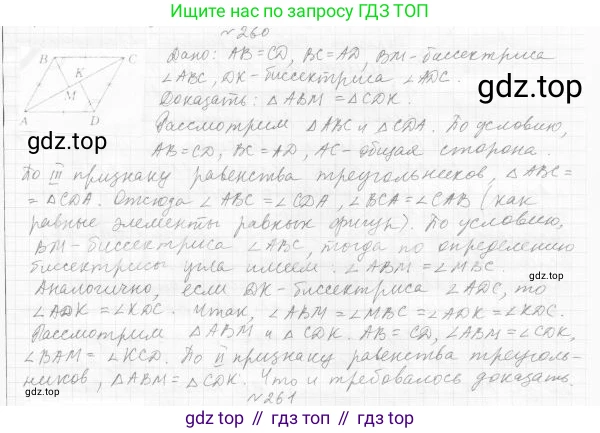 Ищите нас по запросу ГДЗ ТОП
№260
B C
K
M
A D
Дано: AB=CD, BC=AD, BM-биссектриса
∠ABC, DK-биссектриса ∠ADC.
Доказать: △ABM=△CDK.
gdz.top
Рассмотрим △ABC и △CDA. По условию,
AB=CD, BC=AD, AC-общая сторона.
gdz.top
По III признаку равенства треугольников, △ABC=
=△CDA. Отсюда ∠ABC=∠CDA, ∠BCA=∠CAB (как
равные элементы равных фигур). По условию,
BM-биссектриса ∠ABC, тогда по определению
биссектрисы угла имеем: ∠ABM=∠MBC.
Аналогично, если DK-биссектриса ∠ADC, то
∠ADK=∠KDC. Итак, ∠ABM=∠MBC=∠ADK=∠KDC.
Рассмотрим △ABM и △CDK. AB=CD, ∠ABM=∠CDK,
∠BAM=∠KCD. По II признаку равенства треуголь-
ников, △ABM=△CDK. Что и требовалось доказать.
gdz.top
gdz.top
№261
gdz top // гдз топ // gdz.top